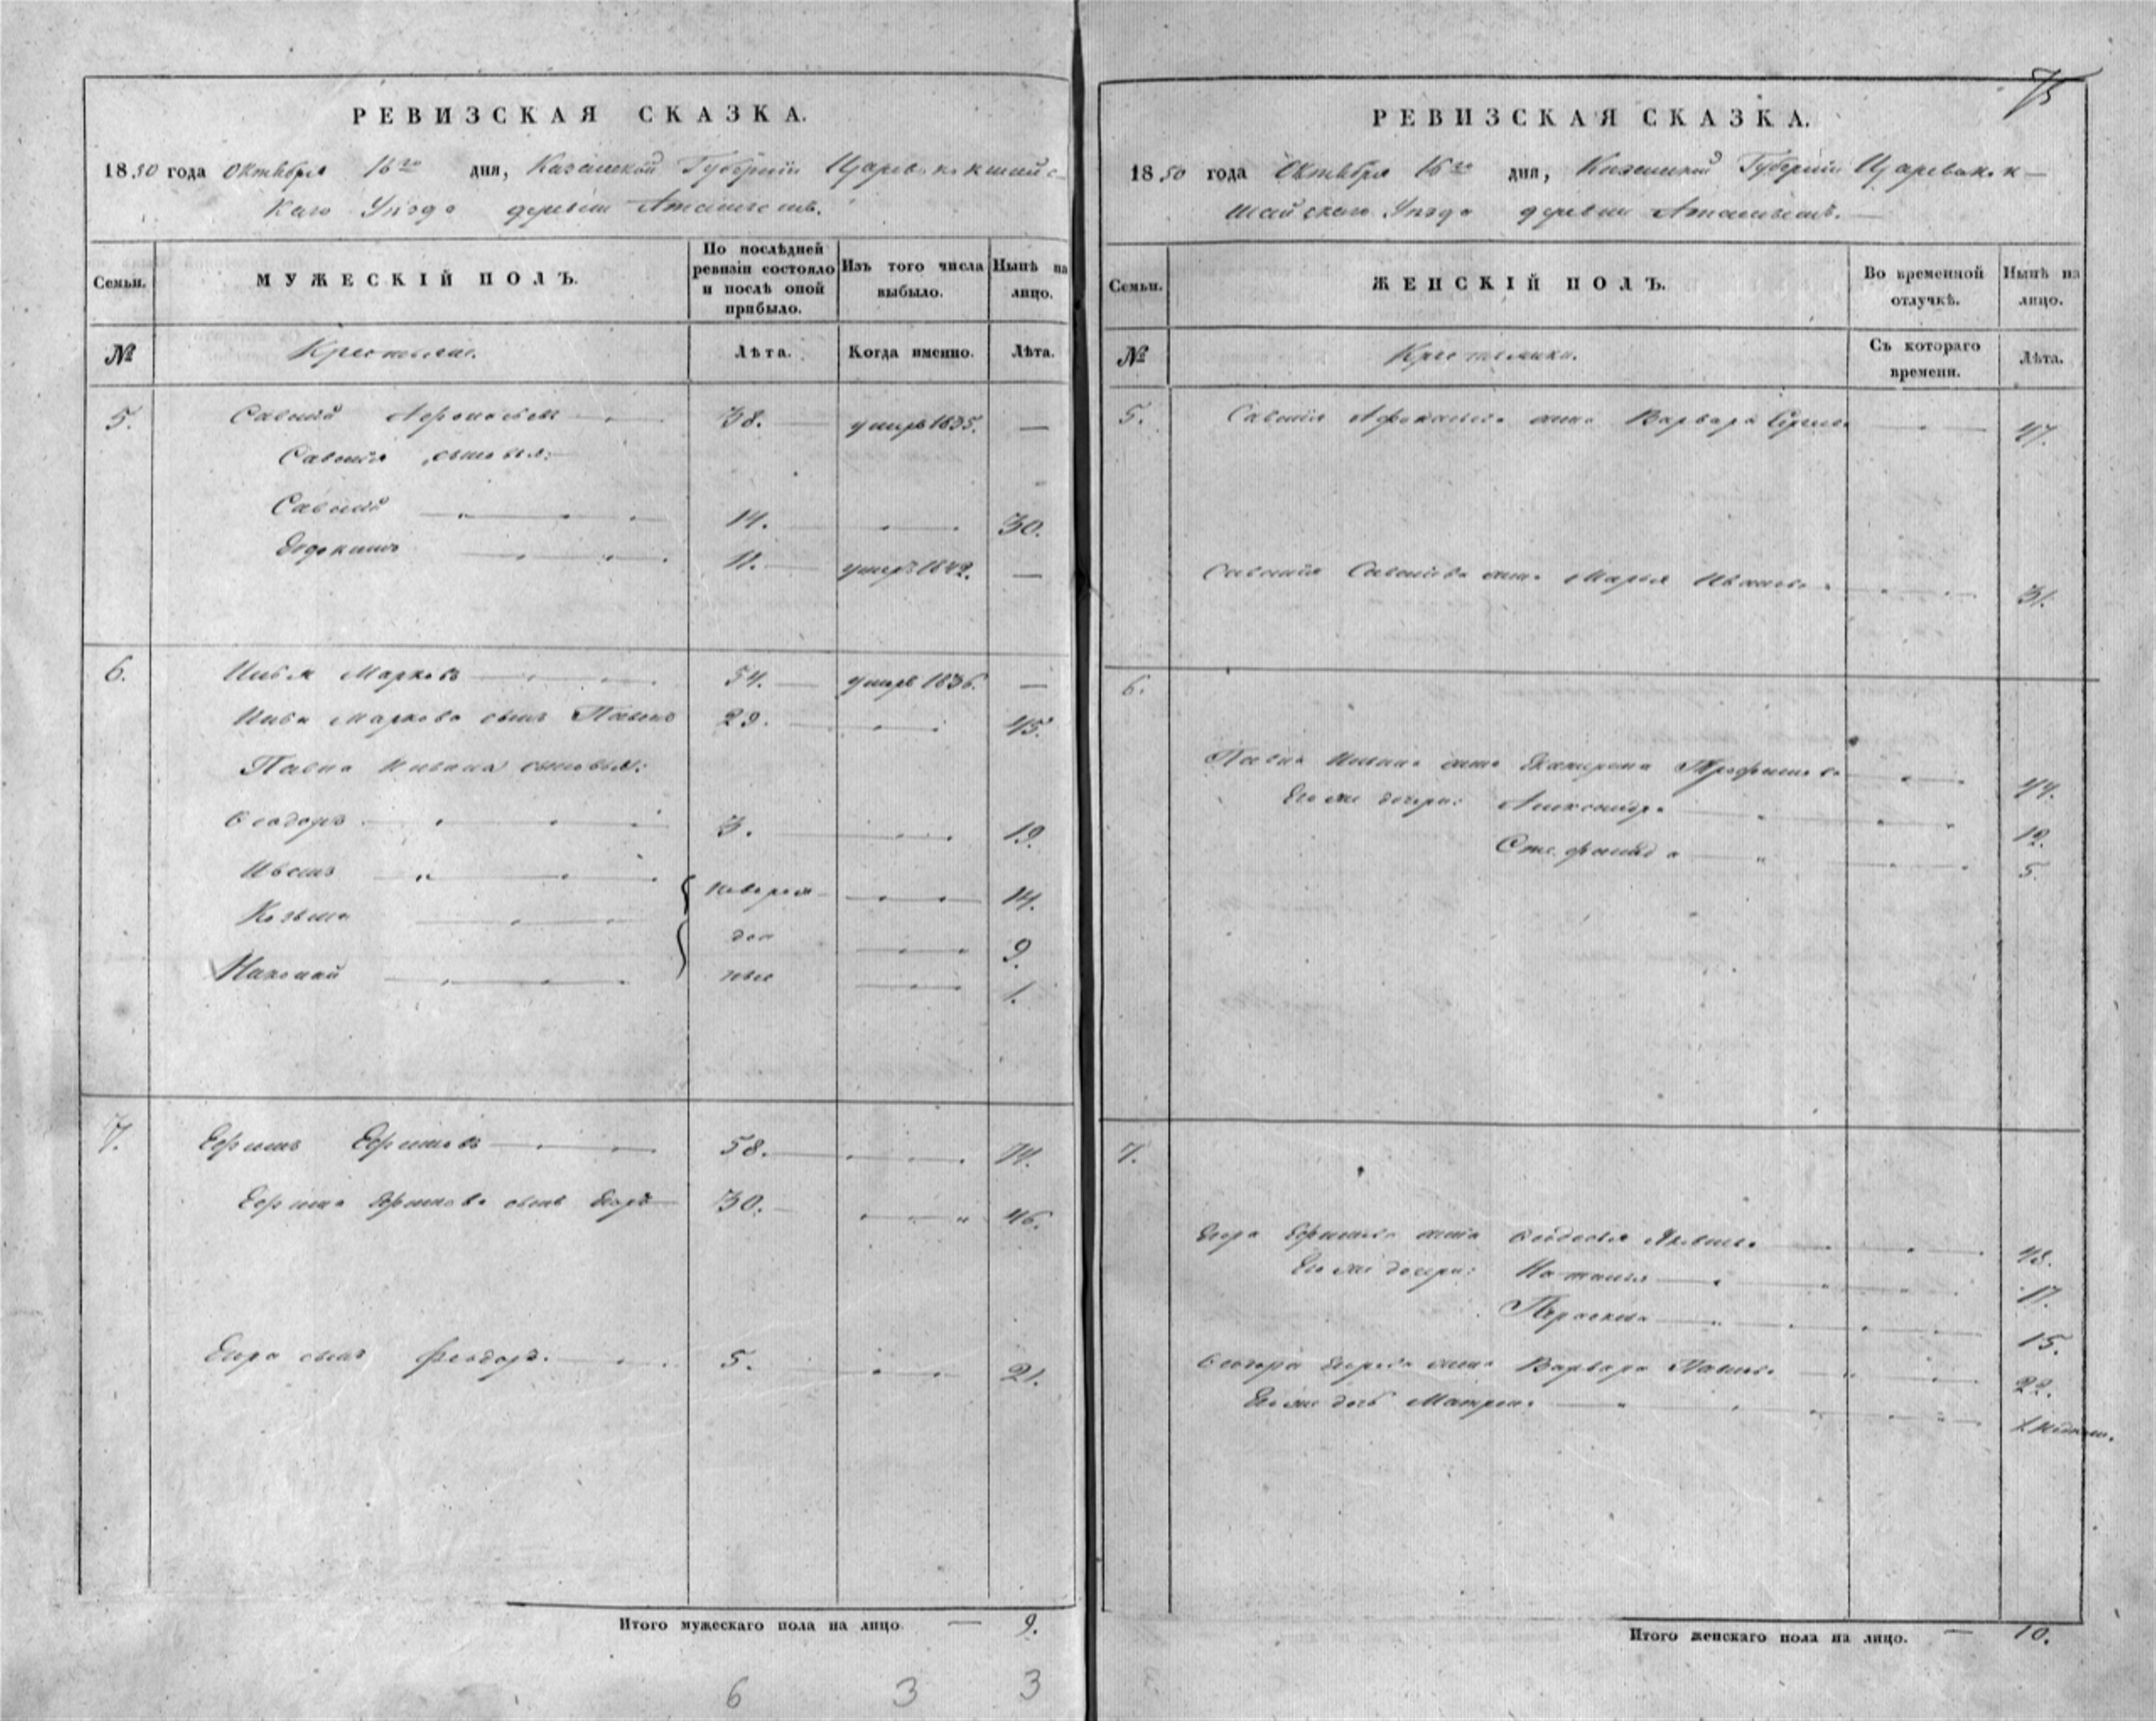 РЕВИЗСКАЯ СКАЗКА.
1850 года Октября 16го дня, Казанской Губернии Царевококшайс-
каго Уѣзда деревни
Семьи.
МУЖЕСКІЙ ПОЛЪ.
По послѣдней ревизіи состояло и послѣ оной прибыло.
Изъ того числа выбыло.
Нынѣ на лицо.
№
Крестьяне.
Лѣта.
Когда именно.
Лѣта.
5. 38. умеръ 1835. —
сыновья:
14. 30.
Евдокимъ 11. умеръ 1842. —
6. Марковъ 54. умеръ 1836. —
Маркова сынъ Павелъ 29. 45.
Павла сыновья:
Ѳеодоръ 3. 19.
Иванъ новорож- 14.
Козьма ден 9.
Николай ные 1.
7. Ефимъ Ефимовъ 58. 74.
Ефима Ефимова сынъ Егоръ 30. 46.
Егора сынъ Феодоръ. 5. 21.
Итого мужескаго пола на лицо — 9.
6 3 3
75
РЕВИЗСКАЯ СКАЗКА.
1850 года Октября 16го дня, Казанской Губерніи Царевокок-
шайскаго Уѣзда деревни
Семьи.
ЖЕНСКІЙ ПОЛЪ.
Во временной отлучкѣ.
Нынѣ на лицо.
№
Крестьянки.
Съ котораго времени.
Лѣта.
5. жена Варвара 47.
жена Марья Иванова 31.
6.
Павла жена Екатерина Трофимова 44.
Его же дочери: Александра 12.
Стефанида 5.
7.
Егора Ефимова жена Ѳеодосья 48.
Его же дочери: Наталья 17.
Парасковья 15.
Егорова жена Варвара 22.
Его же дочь Матрена
Итого женскаго пола на лицо. — 10.